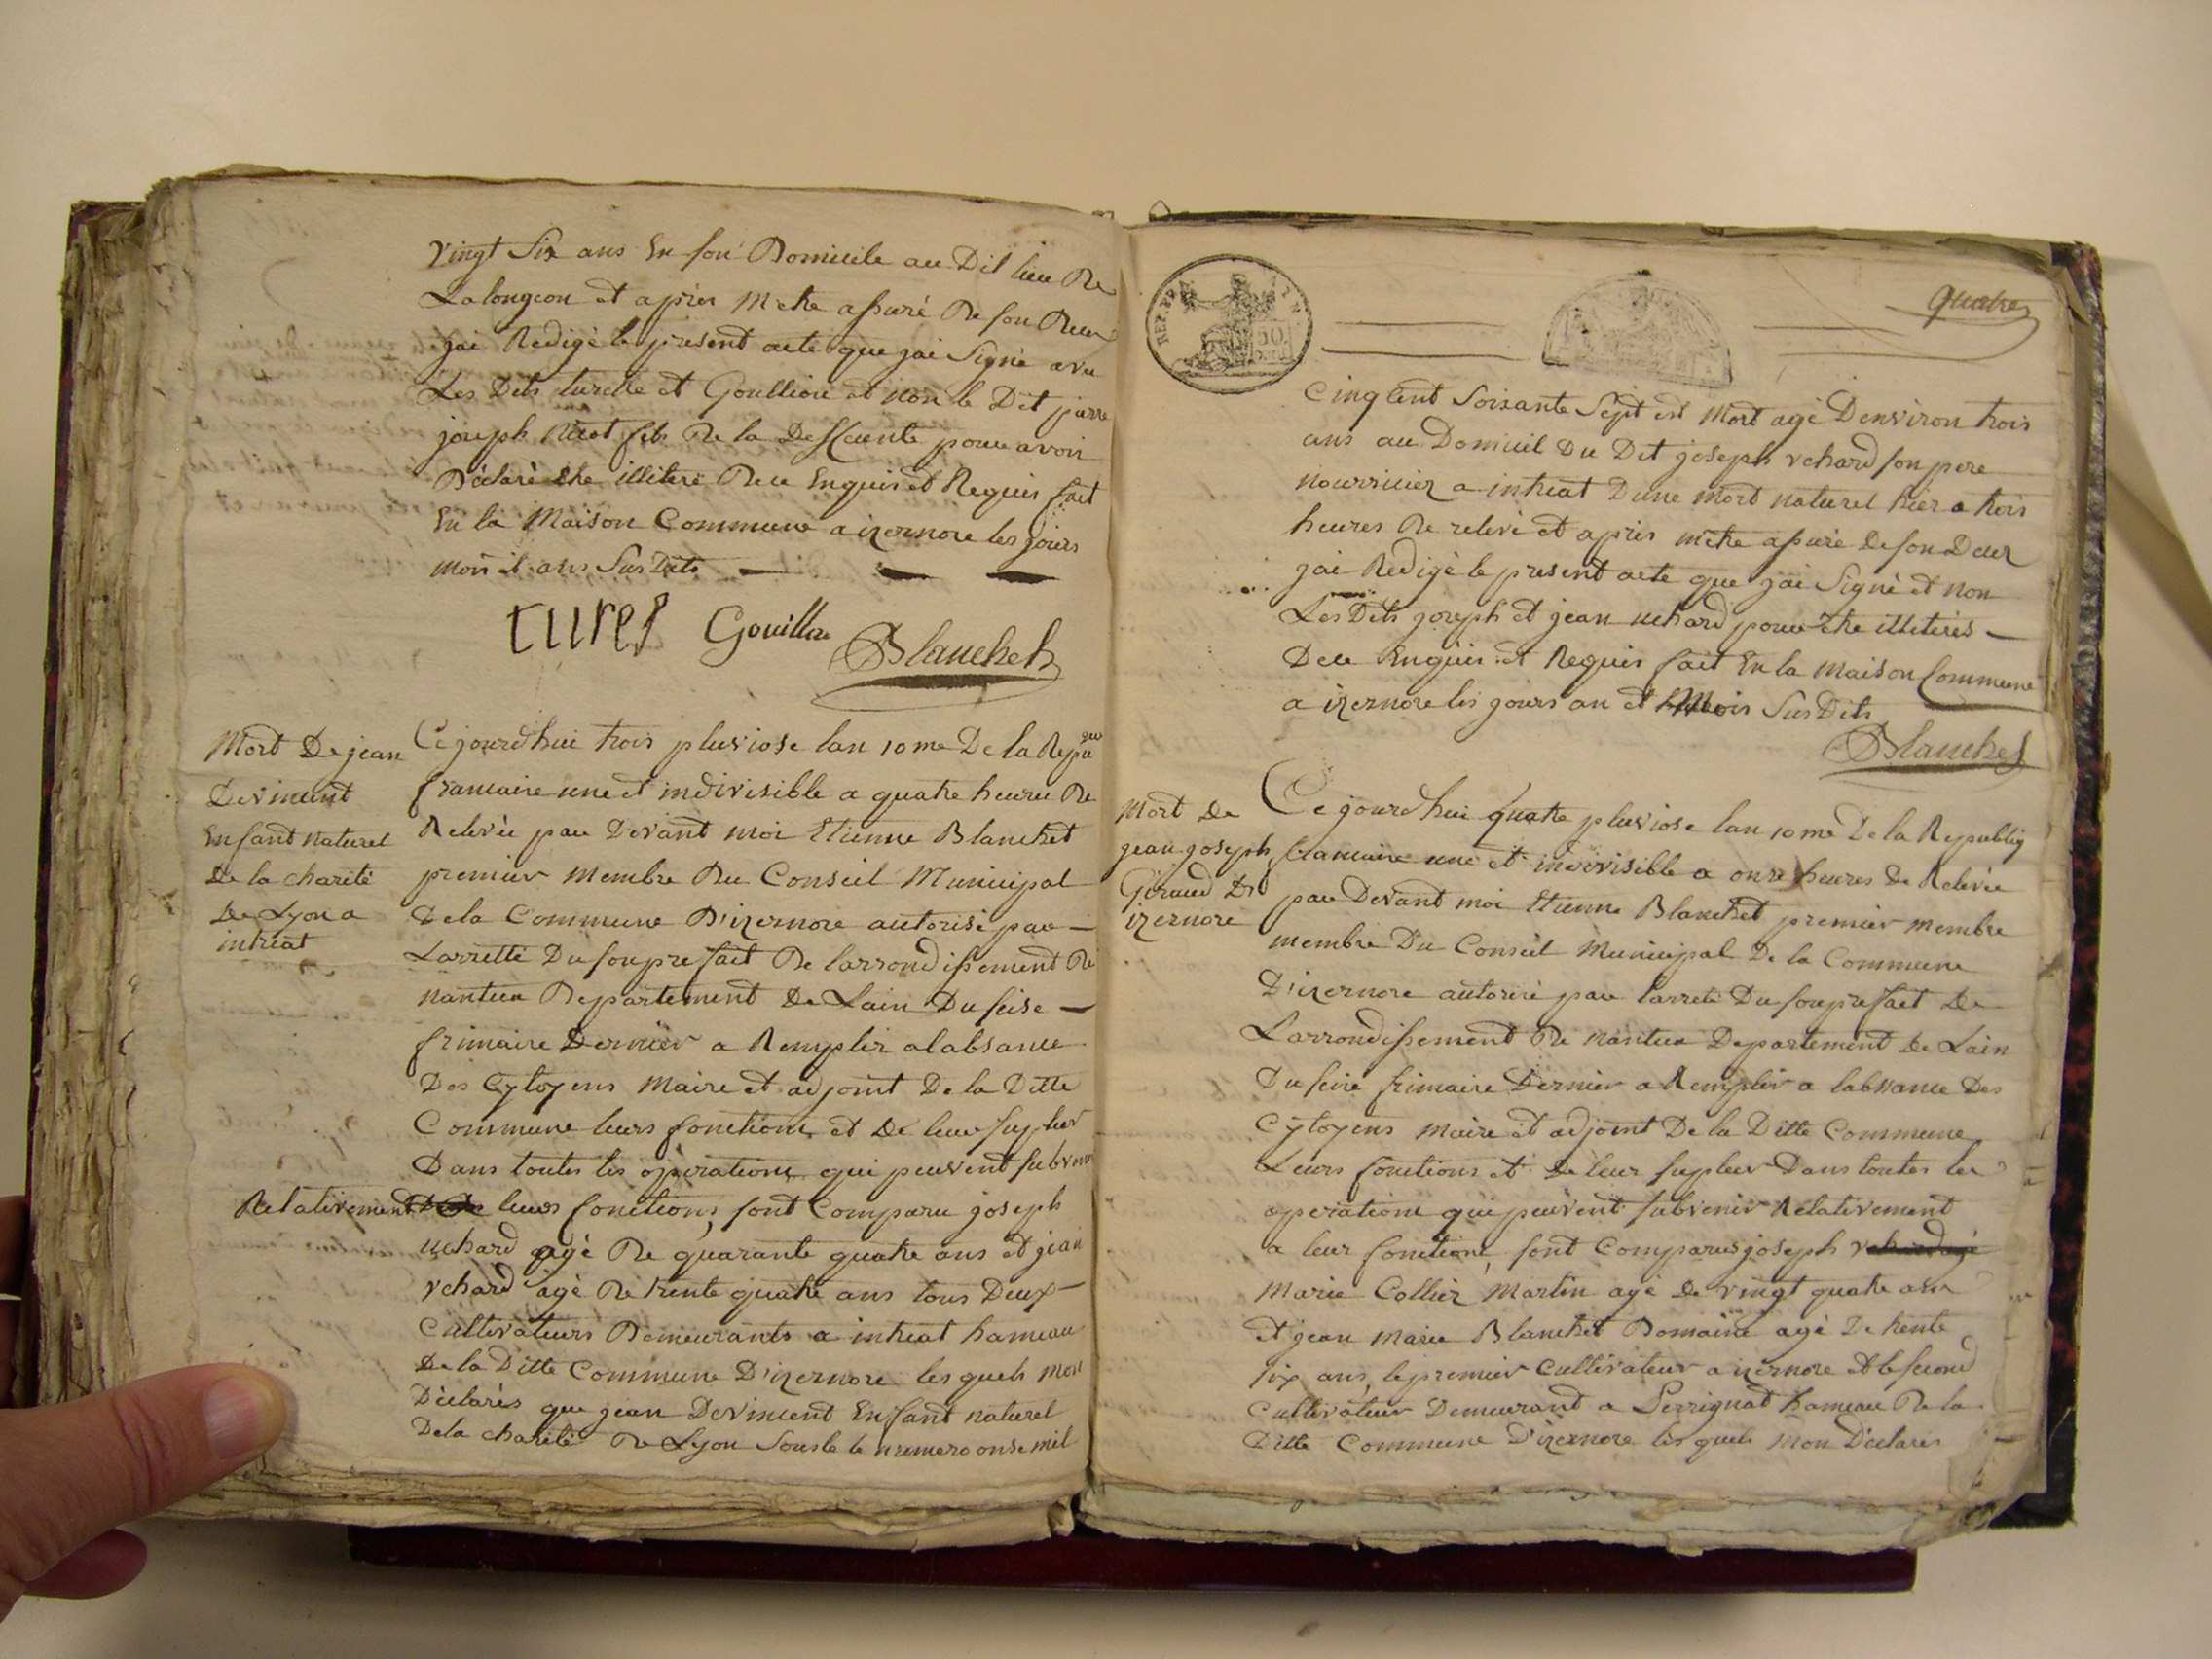 vingt Six ans En son Domicile au Dit lieu De
Lalongeon et après M'etre assuré De son Deces
jai Redigé le present acte que jai Signé avec
Les Dits turelle et Goullion et non le Dit
joseph fils De la Deffunte pour avoir
Déclaré Etre illiteré De ce Enquis et Requis fait
En la Maison Commune a izernore les jours
mois et ans Sus Dits
Gouillon
Blanchet
Mort De jean
Devincent
Enfant naturel
De la charité
De Lyon a
intriat
Cejourdhui trois pluviose lan 10 me De la Repu que
francaise une et indivisible a quatre heures De
Relevée par Devant moi Etienne Blanchet
premier Membre Du Conseil Municipal
De la Commune D'izernore autorisé par
Larretté Du souprefait De larrondissement De
nantua Departement De Lain Du seise
frimaire Dernier a Remplir alabsance
Des Cytoyens Maire et adjoint De la Ditte
Commune leurs fonctions et De leur supleer
Dans toutes les opérations qui peuvent subvenir
Relativement leurs fonctions, sont Comparu joseph
uchard agé De quarante quatre ans et jean
vchard agé De trente quatre ans tous Deux
Cultivateurs Demeurants a intriat hameau
De la Ditte Commune D'izernore les quels mon
Déclarés que jean Devincent Enfant naturel
De la charité De Lyon Sous le numero onse mil
REP. FRA.
50
quatre
Cinq Cent Soixante Sept est Mort agé Denviron trois
ans au Domicil Du Dit joseph vchard son pere
nourricier a intriat Dune mort naturel hier a trois
heures De relevé et après m'etre assuré De son Decez
jai Redigé le present acte que jai Signé et non
Les Dits joseph et jean uchard pour etre illiterés
De ce Enquis et Requis fait En la Maison Commune
a izernore les jours an et Mois Sus Dits
Blanchet
Mort De
jean joseph
Giraud De
izernore
Ce jourdhui quatre pluviose lan 10 me De la Republiq
francaise une et indivisible a onze heures De Relevée
par Devant moi Etienne Blanchet premier membre
membre Du Conseil Municipal De la Commune
D'izernore autorisé par larreté Du souprefait De
Larrondissement De nantua Departement De Lain
Du seize frimaire Dernier a Remplir a labsance Des
Cytoyens Maire et adjoint De la Ditte Commune
Leurs fonctions et De leur supleer Dans toutes les
operations qui peuvent subvenir Relativement
a leur fonctions, sont Comparus joseph
Marie Collier Martin agé De vingt quatre ans
et jean Marie Blanchet Romaine agé De trente
six ans, le premier Cultivateur a izernore et le second
Cultivateur Demeurant a Perrignat hameau De la
Ditte Commune D'izernore les quels mon Déclarés